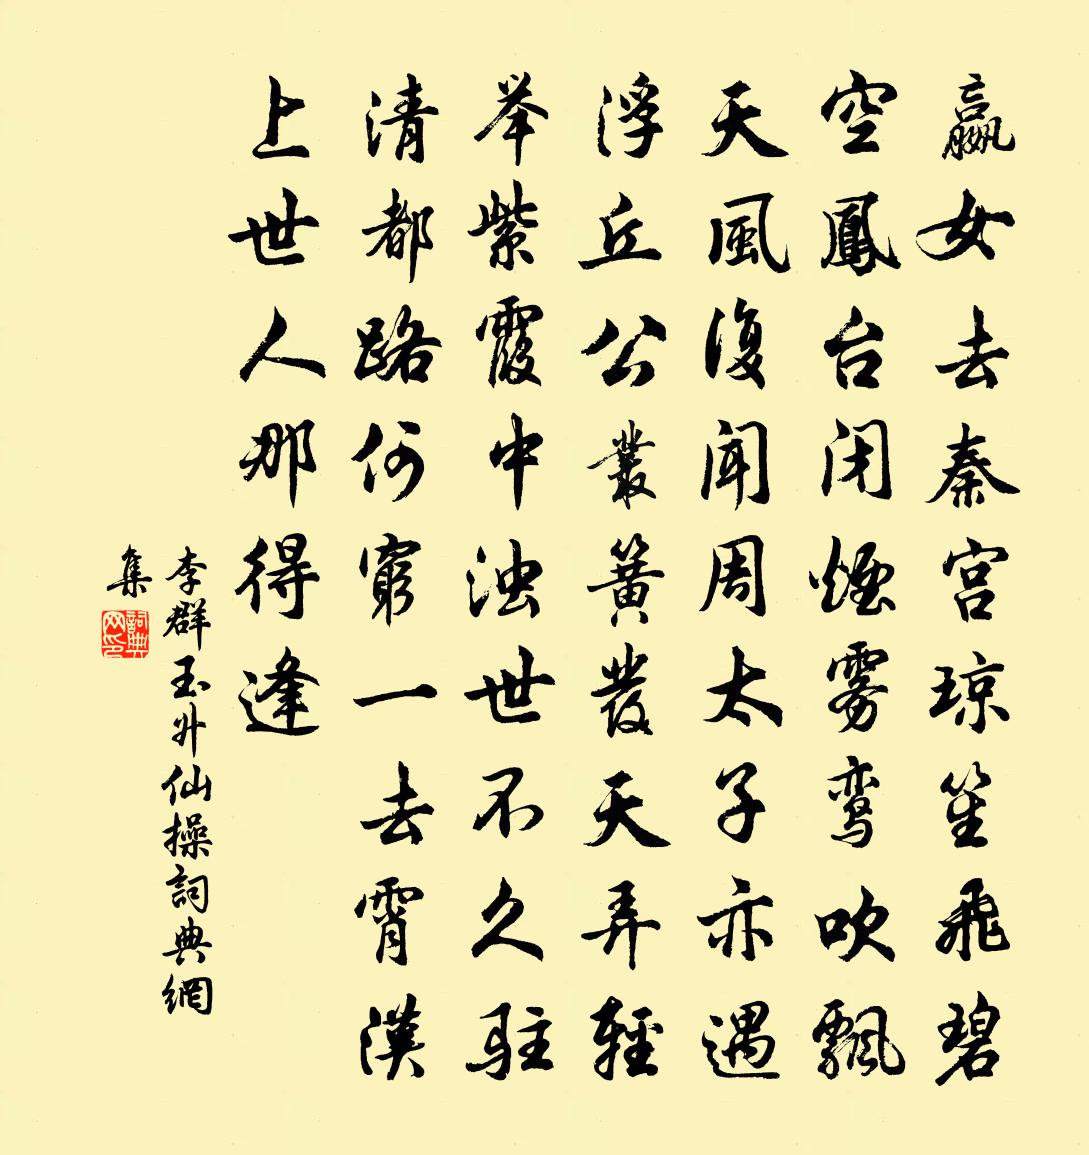 嬴女去秦宫琼笙飛碧
空鳳台闭煙雾鸾吹飘
天風復闻周太子亦遇
浮丘公叢簧发天弄輕
举紫霞中浊世不久駐
清都路何窮一去霄漢
上世人那得逢
李群玉升仙操詞典網
集
詞典
网印